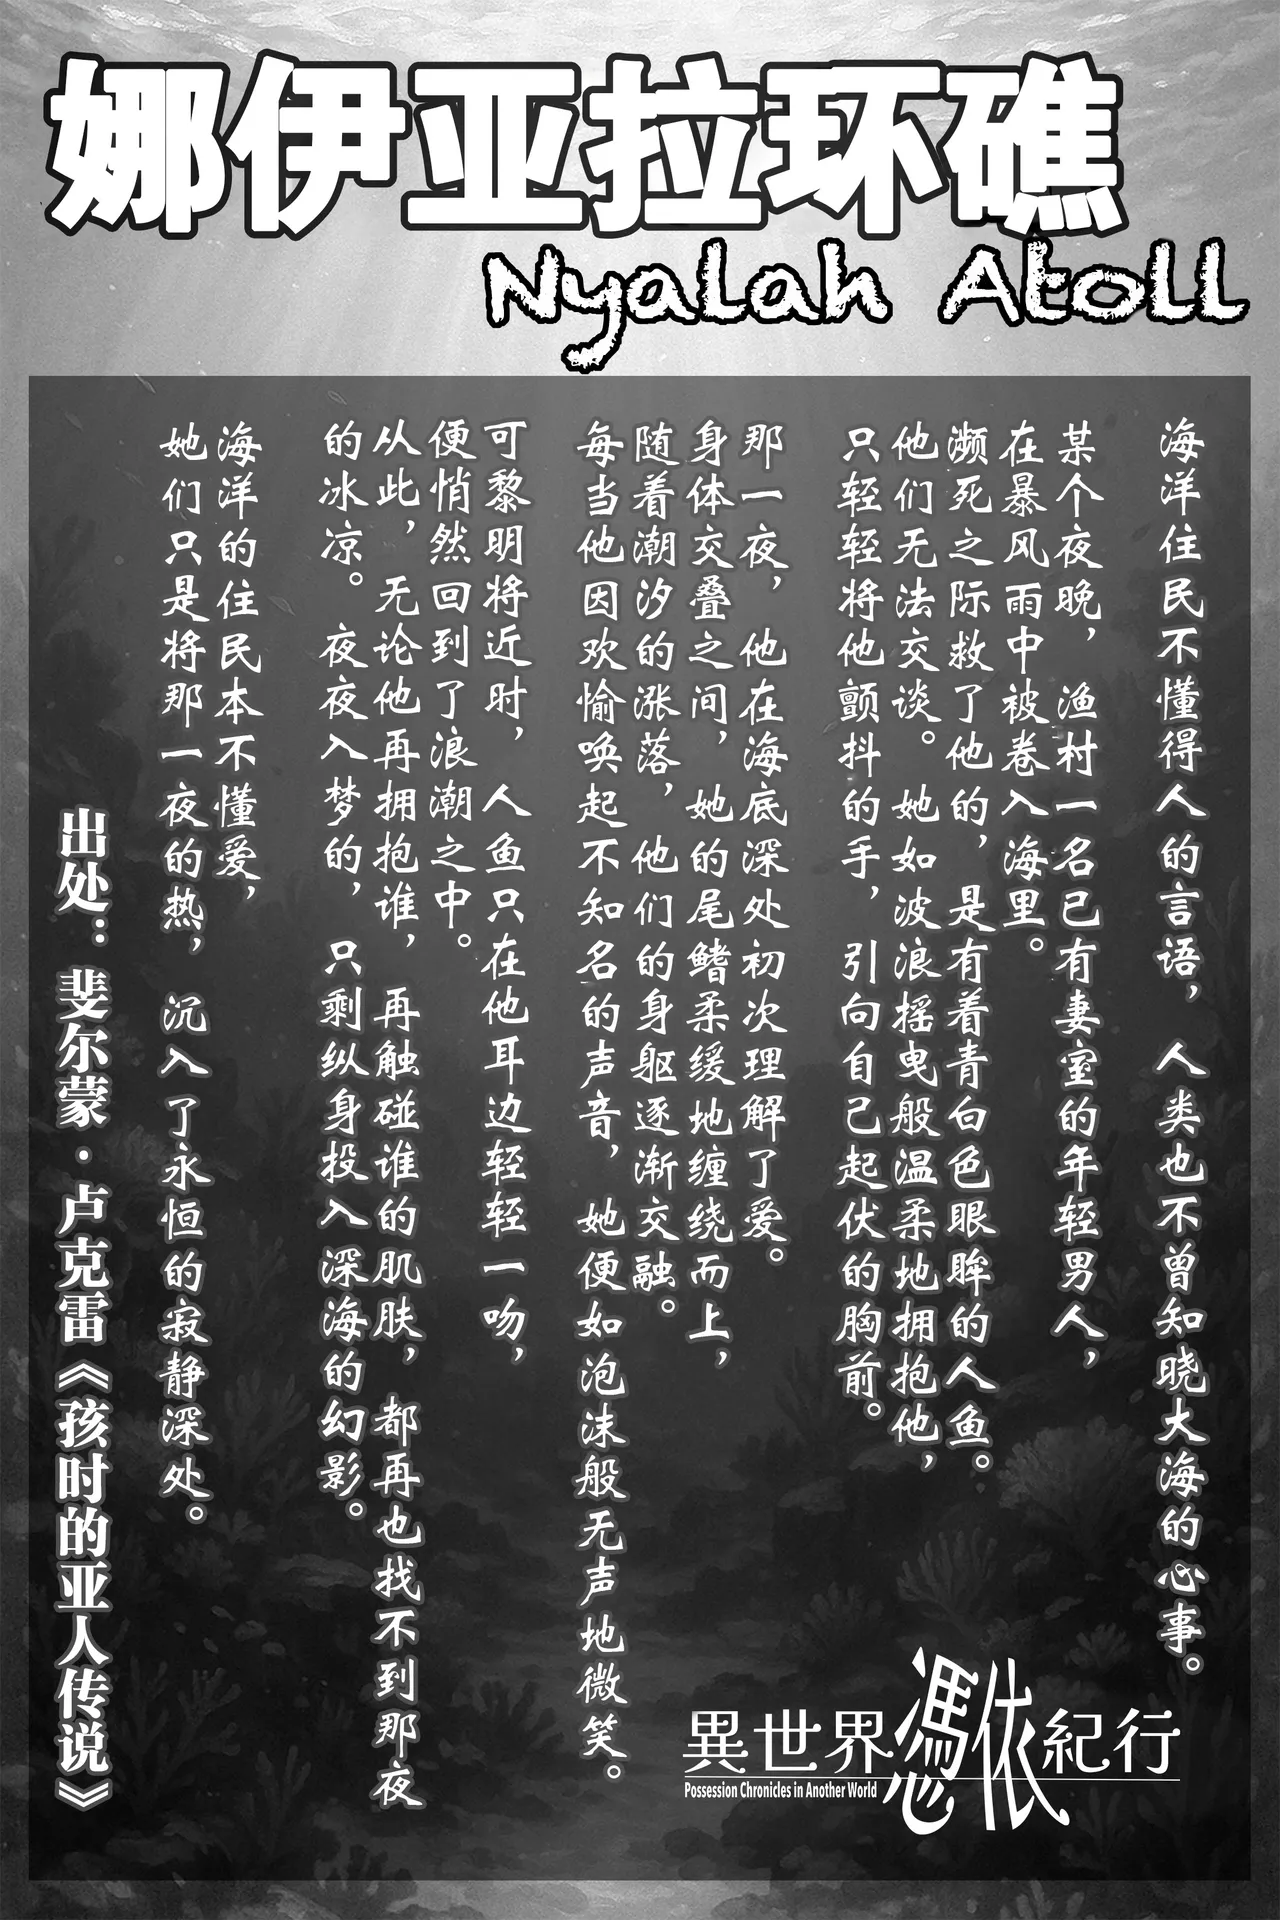 娜伊亚拉环礁
Nyalah Atoll
海洋住民不懂得人的言语，人类也不曾知晓大海的心事。
某个夜晚，渔村一名已有妻室的年轻男人，
在暴风雨中被卷入海里。
濒死之际救了他的，是有着青白色眼眸的人鱼。
他们无法交谈。她如波浪摇曳般温柔地拥抱他，
只轻轻将他颤抖的手，引向自己起伏的胸前。
那一夜，他在海底深处初次理解了爱。
身体交叠之间，她的尾鳍柔缓地缠绕而上，
随着潮汐的涨落，他们的身躯逐渐交融。
每当他因欢愉唤起不知名的声音，她便如泡沫般无声地微笑。
可黎明将近时，人鱼只在他耳边轻轻一吻，
便悄然回到了浪潮之中。
从此，无论他再拥抱谁，再触碰谁的肌肤，都再也找不到那夜
的冰凉。夜夜入梦的，只剩纵身投入深海的幻影。
海洋的住民本不懂爱，
她们只是将那一夜的热，沉入了永恒的寂静深处。
出处：斐尔蒙·卢克雷《孩时的亚人传说》
異世界憑依紀行
Possession Chronicles in Another World